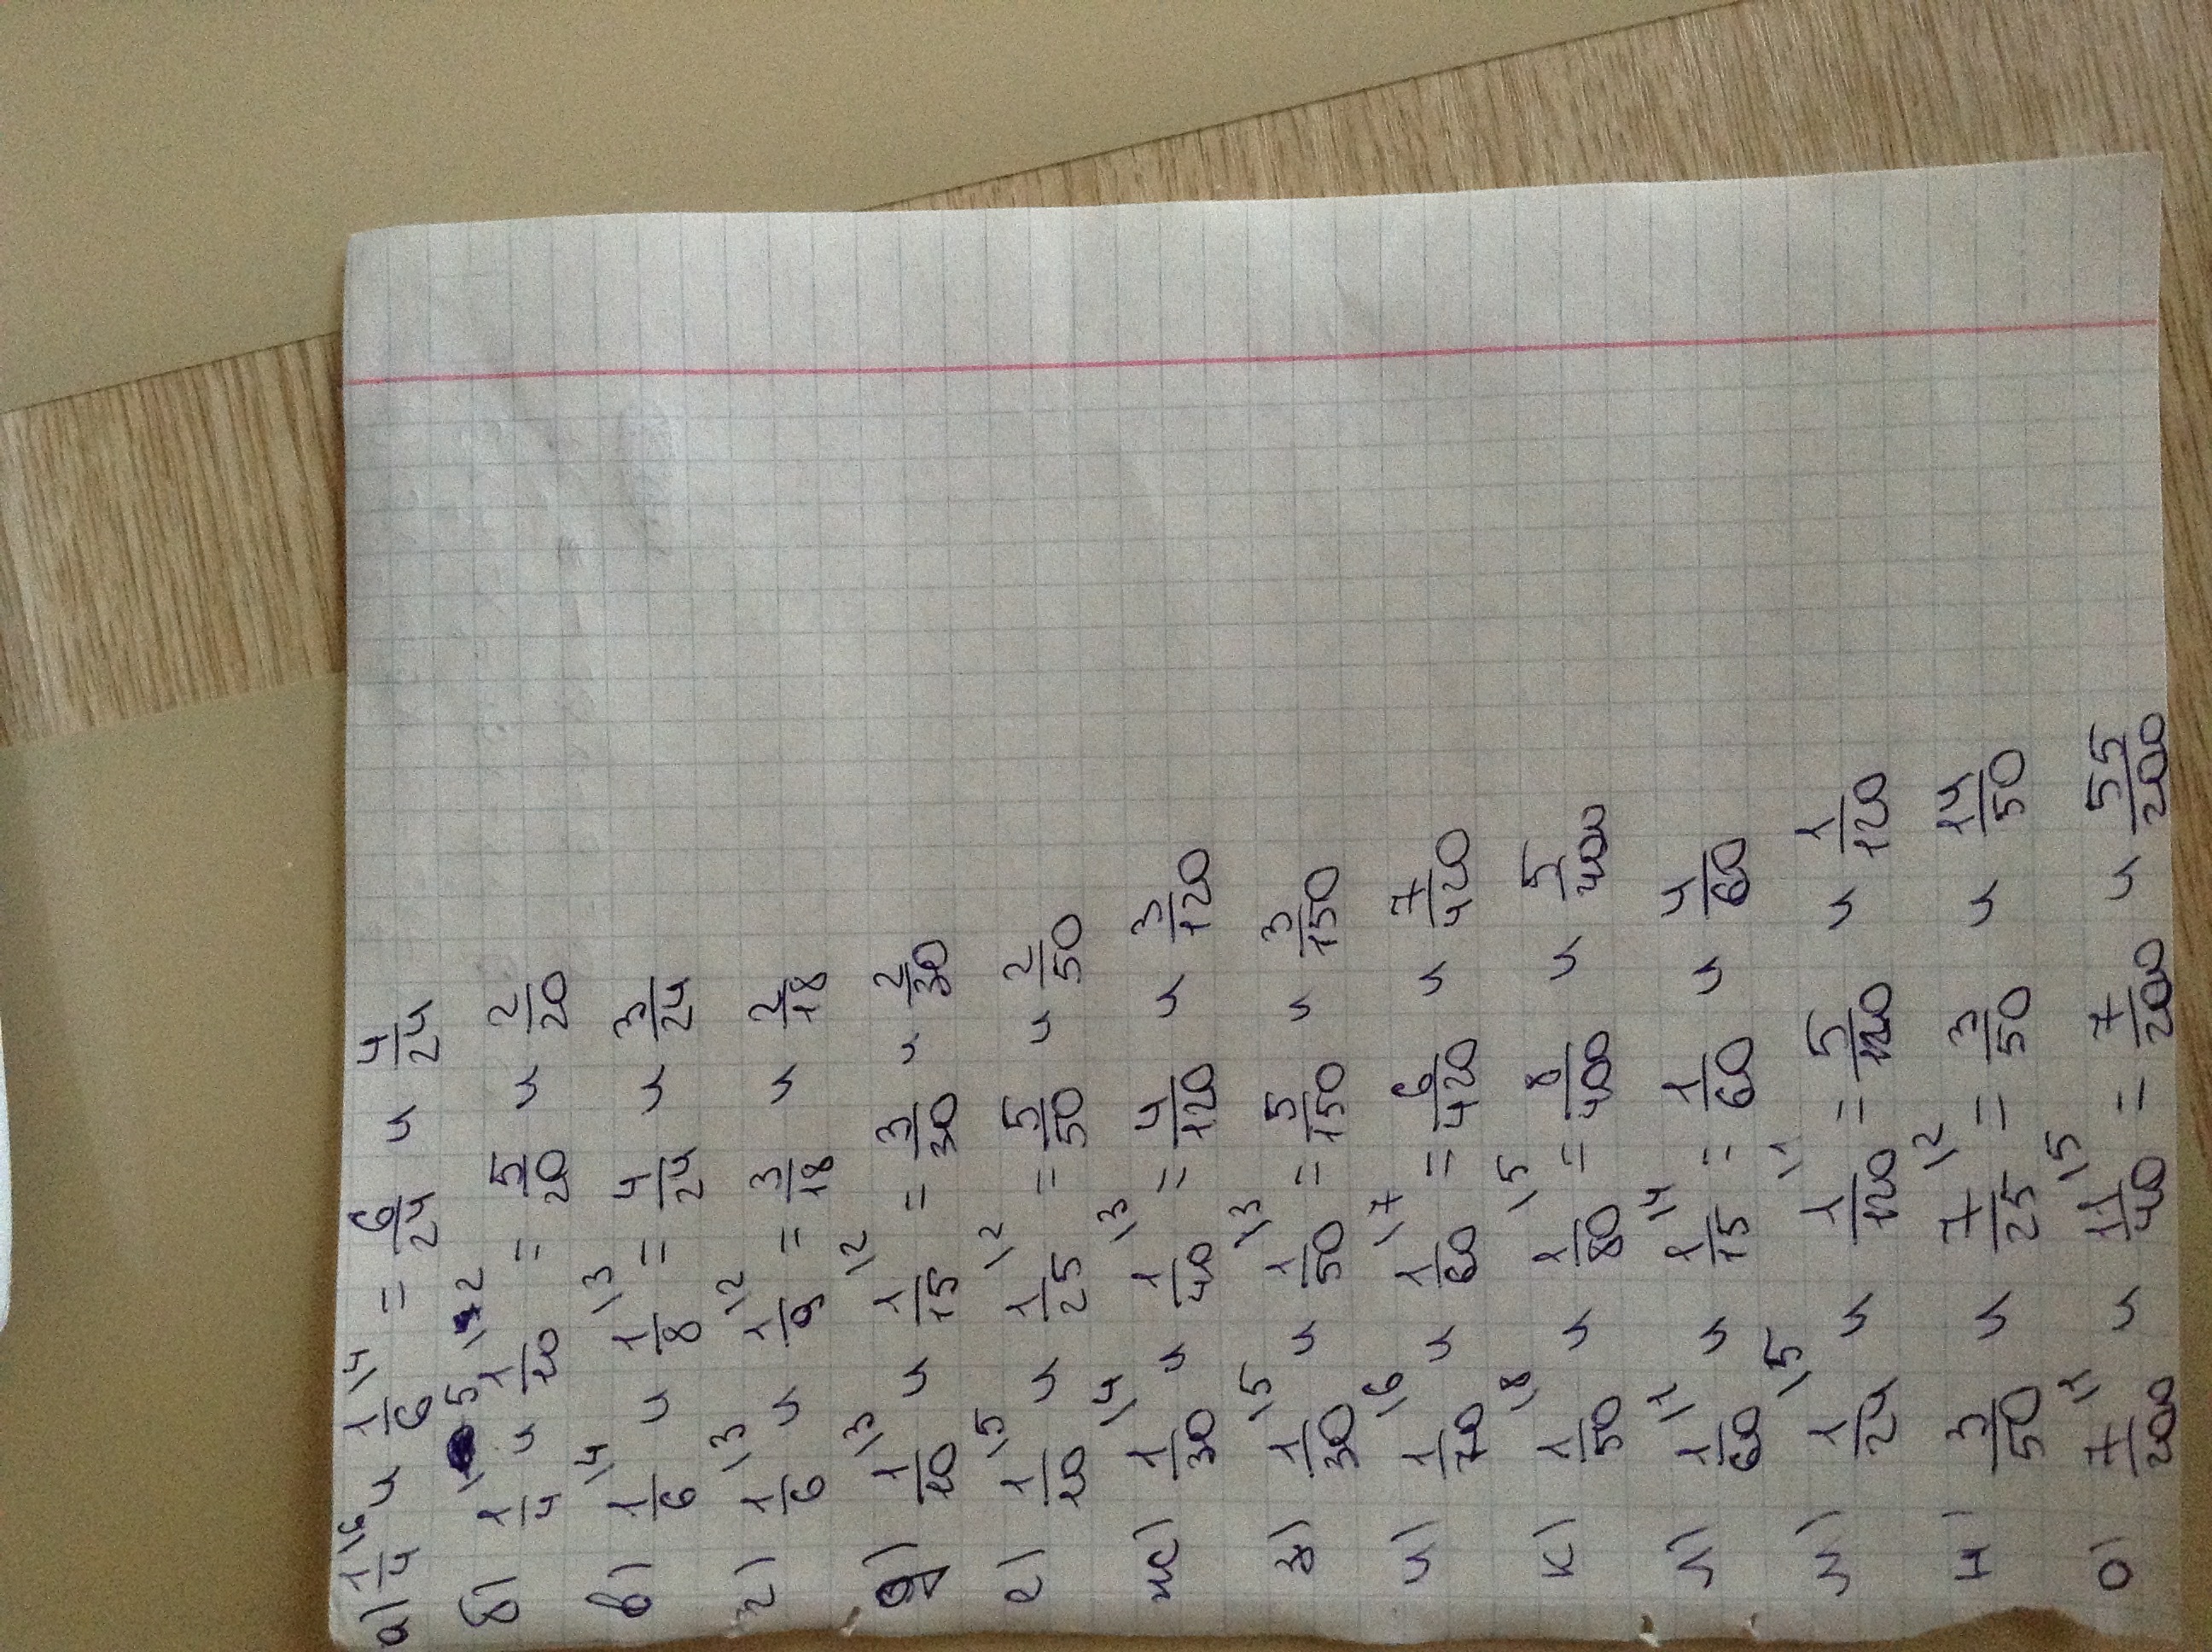 а) 1/4 \6 и 1/6 \4 = 6/24 и 4/24
б) 1/4 \5 и 1/10 \2 = 5/20 и 2/20
в) 1/6 \4 и 1/8 \3 = 4/24 и 3/24
г) 1/6 \3 и 1/9 \2 = 3/18 и 2/18
д) 1/10 \3 и 1/15 \2 = 3/30 и 2/30
е) 1/10 \5 и 1/25 \2 = 5/50 и 2/50
ж) 1/30 \4 и 1/40 \3 = 4/120 и 3/120
з) 1/30 \5 и 1/50 \3 = 5/150 и 3/150
и) 1/70 \6 и 1/60 \7 = 6/420 и 7/420
к) 1/50 \8 и 1/80 \5 = 8/400 и 5/400
л) 1/60 \1 и 1/15 \4 = 1/60 и 4/60
м) 1/24 \5 и 1/120 \1 = 5/120 и 1/120
н) 3/50 и 7/25 \2 = 3/50 и 14/50
о) 7/200 \1 и 11/40 \5 = 7/200 и 55/200